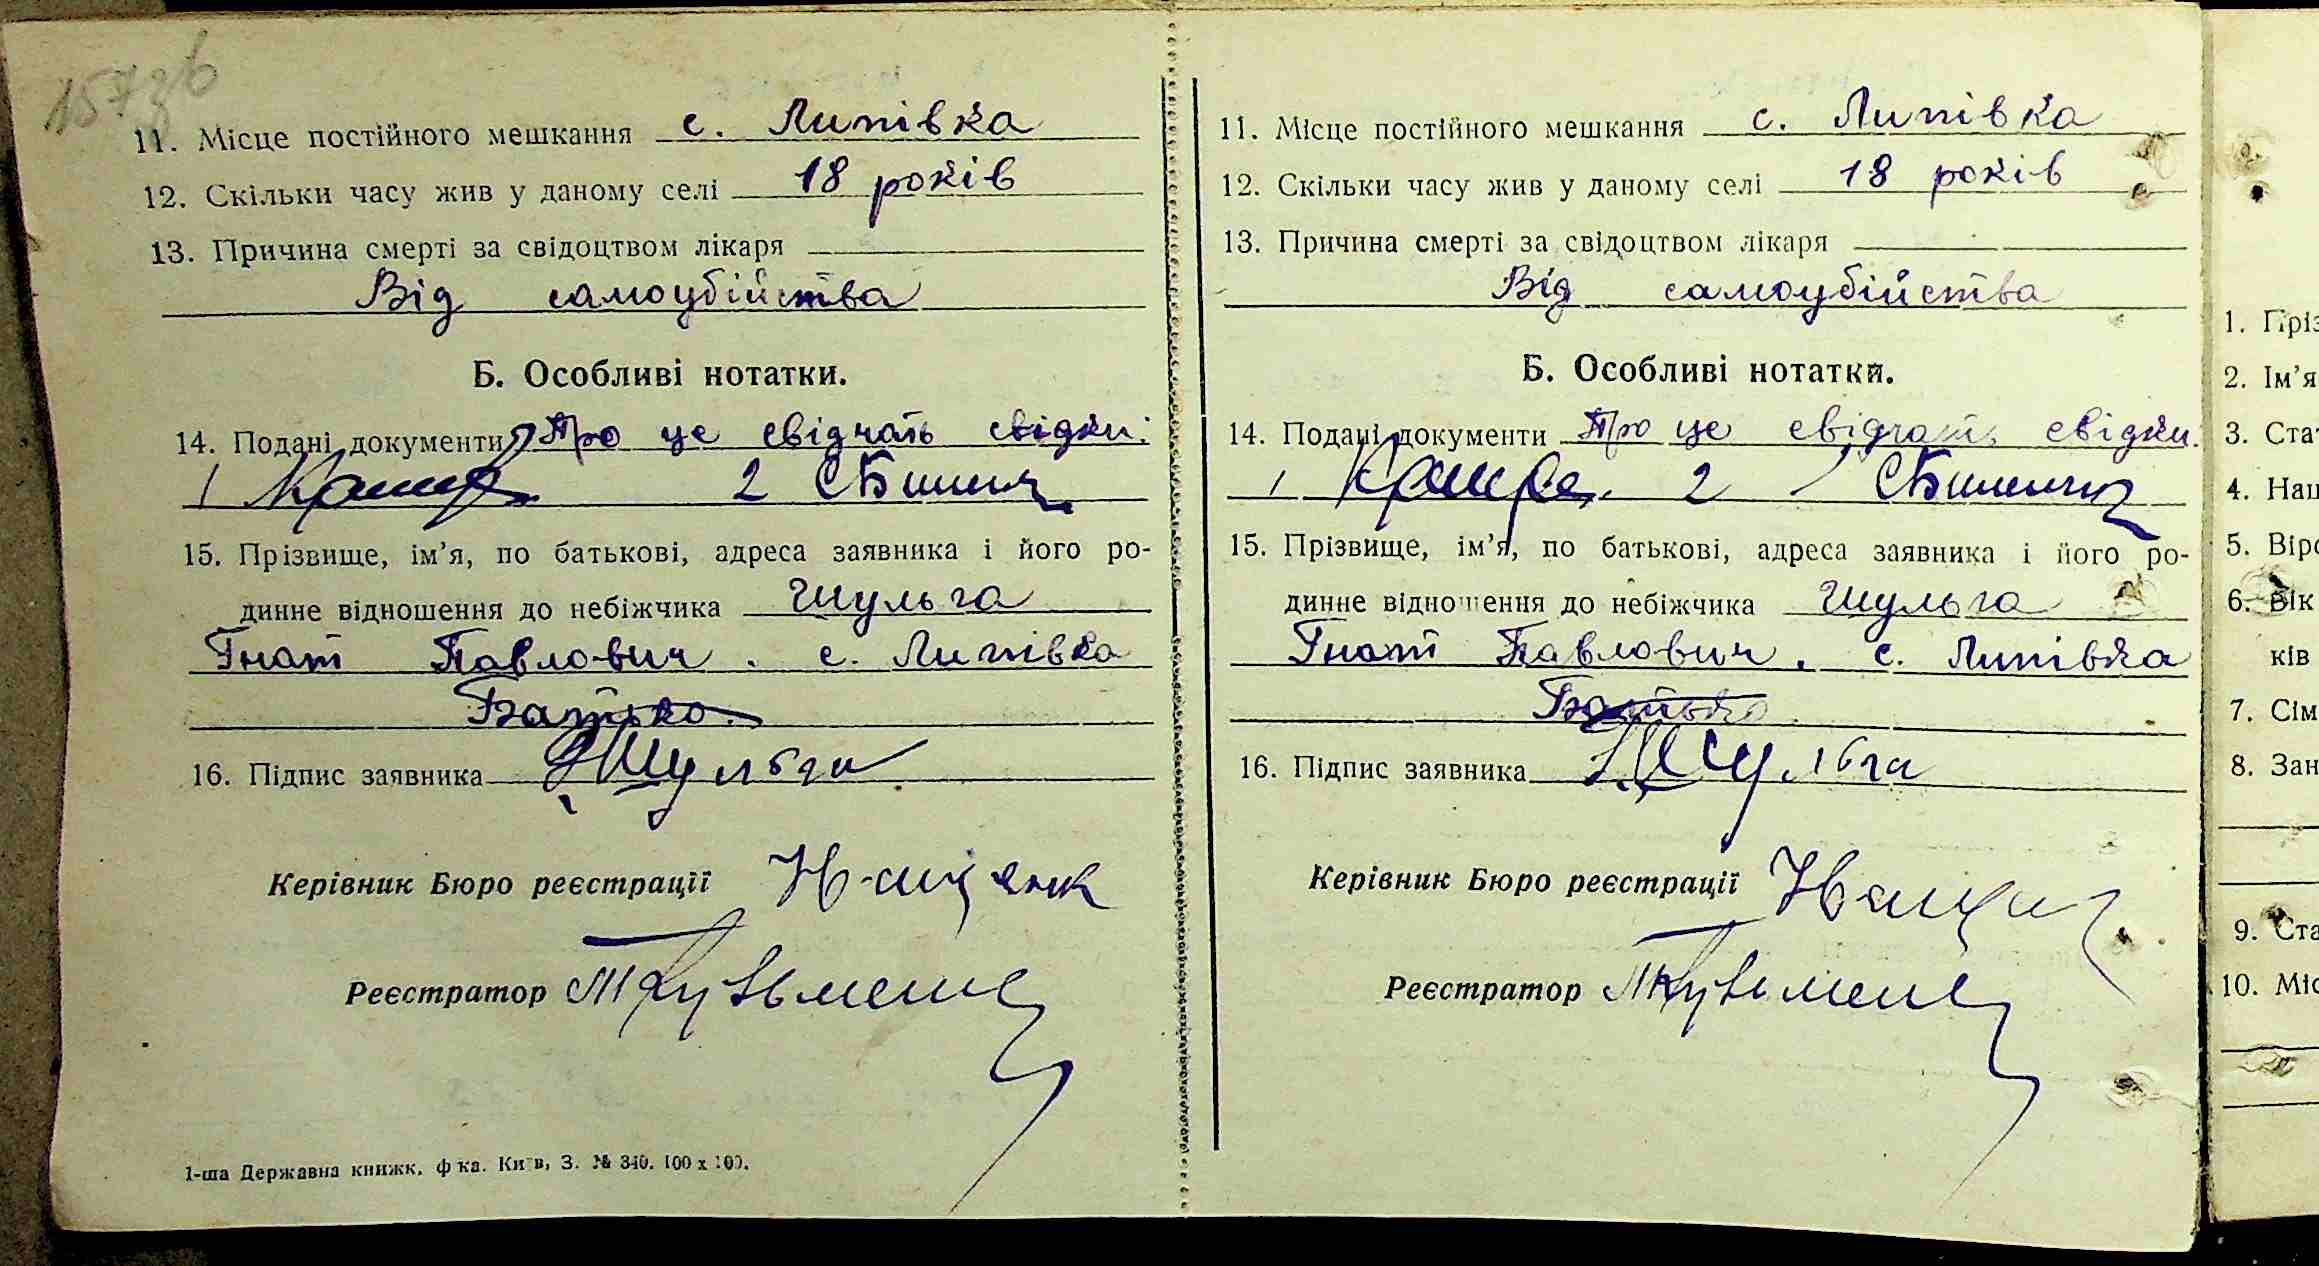 11. Місце постійного мешкання с. Липівка
12. Скільки часу жив у даному селі 18 років
13. Причина смерті за свідоцтвом лікаря
Від самоубійства
Б. Особливі нотатки.
14. Подані документи Про це свідчать свідки:
1 2
15. Прізвище, ім’я, по батькові, адреса заявника і його ро-
динне відношення до небіжчика Шульга
Гнат Павлович. с. Липівка
Батько.
16. Підпис заявника Шульга
Керівник Бюро реєстрації
Реєстратор
1-ша Державна книжк. ф-ка. Київ, З. № 340. 100 x 100.
11. Місце постійного мешкання с. Липівка
12. Скільки часу жив у даному селі 18 років
13. Причина смерті за свідоцтвом лікаря
Від самоубійства
Б. Особливі нотатки.
14. Подані документи Про це свідчать свідки.
1 2
15. Прізвище, ім’я, по батькові, адреса заявника і його ро-
динне відношення до небіжчика Шульга
Гнат Павлович. с. Липівка
Батько
16. Підпис заявника Шульга
Керівник Бюро реєстрації
Реєстратор
1. Пріз
2. Ім’я
3. Ста
4. Нац
5. Віро
6. Вік
ків
7. Сім
8. Зан
9. Ста
10. Міс